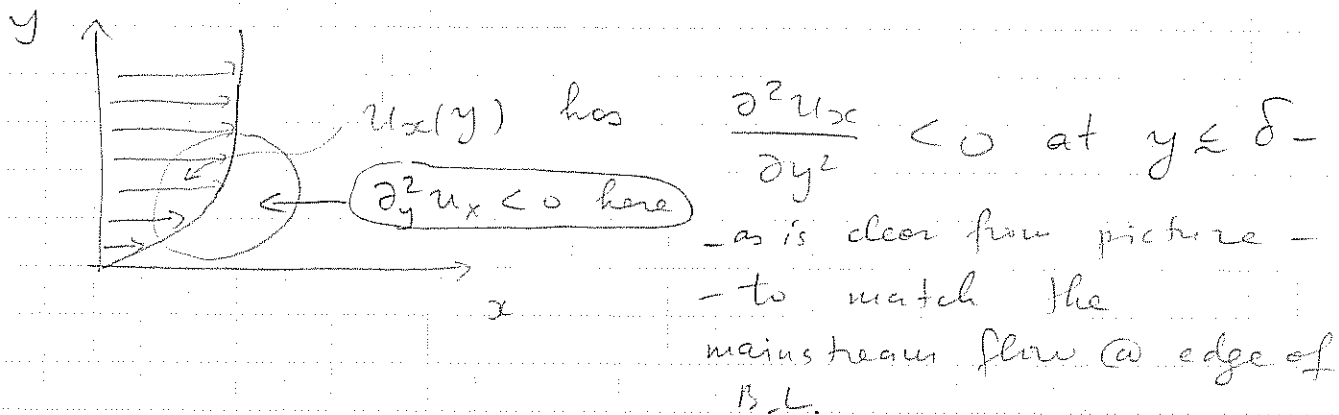 y
u_x(y) has ∂²u_x/∂y² < 0 at y ≲ δ -
∂²_y u_x < 0 here
- as is clear from picture -
x
- to match the
mainstream flow @ edge of
B.L.